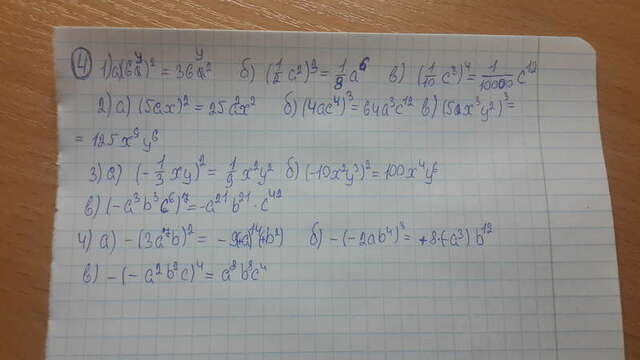 ④ 1) а) (6y)² = 36y² б) (1/2 c²)³ = 1/8 a⁶ в) (1/10 c³)⁴ = 1/10000 c¹²
2) а) (5ax)² = 25a²x² б) (4ac⁴)³ = 64a³c¹² в) (5ax³y²)³ =
= 125x⁹y⁶
3) а) (-1/3 xy)² = 1/9 x²y² б) (-10x²y³)² = 100x⁴y⁶
в) (-a³b³c⁶)⁷ = -a²¹b²¹ · c⁴²
4) а) -(3a⁷b)² = -9a¹⁴b²) б) -(-2ab⁴)³ = +8·(-a³)b¹²
в) -(-a²b²c)⁴ = a⁸b⁸c⁴